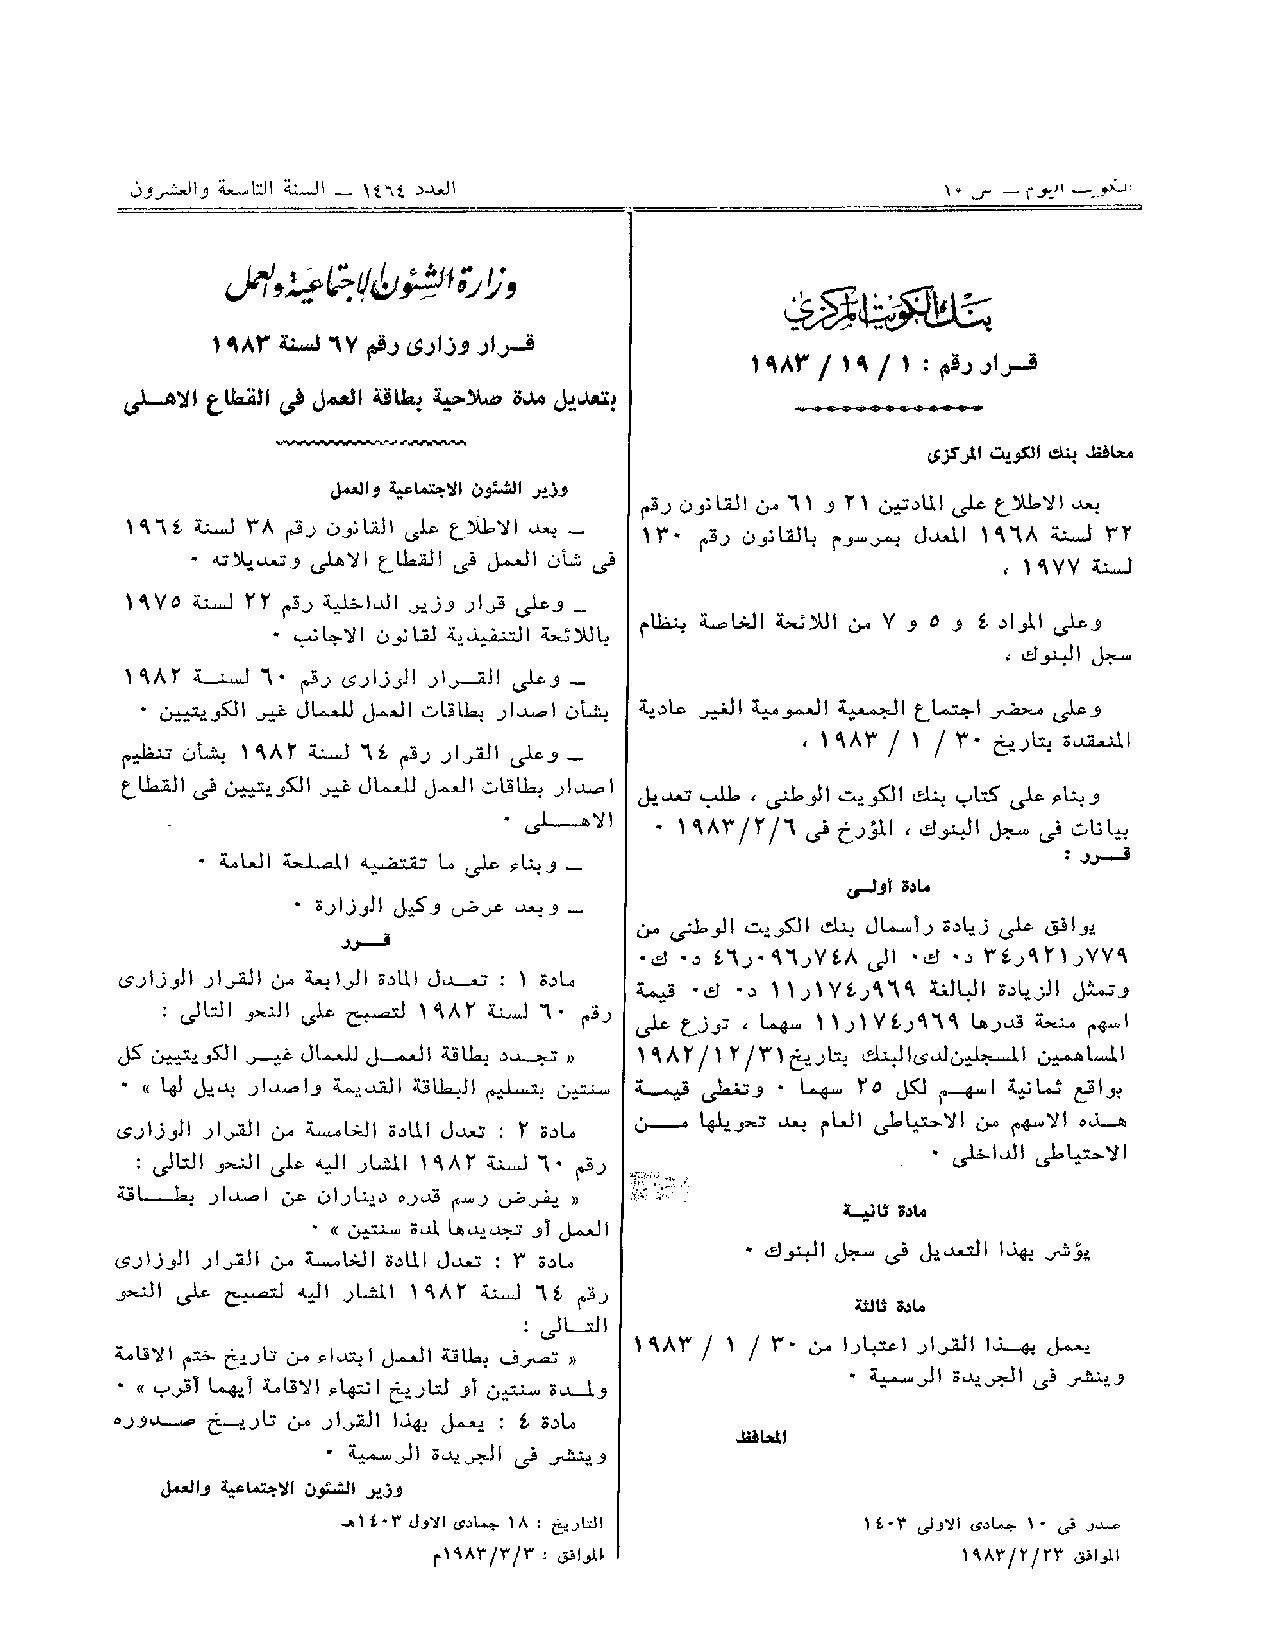 الكويت اليوم — ص ١٠
العدد ١٤٦٤ — السنة التاسعة والعشرون
بنك الكويت المركزي
قــرار رقم : ١ / ١٩ / ١٩٨٣
محافظ بنك الكويت المركزى
بعد الاطلاع على المادتين ٢١ و ٦١ من القانون رقم
٣٢ لسنة ١٩٦٨ المعدل بمرسوم بالقانون رقم ١٣٠
لسنة ١٩٧٧ ،
وعلى المواد ٤ و ٥ و ٧ من اللائحة الخاصة بنظام
سجل البنوك ،
وعلى محضر اجتماع الجمعية العمومية الغير عادية
المنعقدة بتاريخ ٣٠ / ١ / ١٩٨٣ ،
وبناء على كتاب بنك الكويت الوطنى ، طلب تعديل
بيانات فى سجل البنوك ، المؤرخ فى ١٩٨٣/٢/٦ ٠
قــــرر :
مادة أولــى
يوافق على زيادة رأسمال بنك الكويت الوطنى من
٧٧٩ر٩٢١ر٣٤ د٠ ك٠ الى ٧٤٨ر٠٩٦ر٤٦ د٠ ك٠
وتمثل الزيادة البالغة ٩٦٩ر١٧٤ر١١ د٠ ك٠ قيمة
اسهم منحة قدرها ٩٦٩ر١٧٤ر١١ سهما ، توزع على
المساهمين المسجلين لدى البنك بتاريخ ١٩٨٢/١٢/٣١
بواقع ثمانية اسهــم لكل ٢٥ سهما ٠ وتغطى قيمــة
هــذه الاسهم من الاحتياطى العام بعد تحويلها مــــن
الاحتياطى الداخلى ٠
مادة ثانيــة
يؤشر بهذا التعديل فى سجل البنوك ٠
مادة ثالثة
يعمل بهــذا القرار اعتبارا من ٣٠ / ١ / ١٩٨٣
وينشر فى الجريدة الرسمية ٠
المحافظ
صدر فى ١٠ جمادى الاولى ١٤٠٣
الموافق ١٩٨٣/٢/٢٣
وزارة الشئون الاجتماعية والعمل
قــرار وزارى رقم ٦٧ لسنة ١٩٨٣
بتعديل مدة صلاحية بطاقة العمل فى القطاع الاهــلى
وزير الشئون الاجتماعية والعمل
— بعد الاطلاع على القانون رقم ٣٨ لسنة ١٩٦٤
فى شأن العمل فى القطاع الاهلى وتعديلاته ٠
— وعلى قرار وزير الداخلية رقم ٢٢ لسنة ١٩٧٥
باللائحة التنفيذية لقانون الاجانب ٠
— وعلى القــرار الوزارى رقم ٦٠ لسنــة ١٩٨٢
بشأن اصدار بطاقات العمل للعمال غير الكويتيين ٠
— وعلى القرار رقم ٦٤ لسنة ١٩٨٢ بشأن تنظيم
اصدار بطاقات العمل للعمال غير الكويتيين فى القطاع
الاهـــــلى ٠
— وبناء على ما تقتضيه المصلحة العامة ٠
— وبعد عرض وكيل الوزارة ٠
قــــرر
مادة ١ : تعــدل المادة الرابعة من القرار الوزارى
رقم ٦٠ لسنة ١٩٨٢ لتصبح على النحو التالى :
« تجــدد بطاقة العمــل للعمال غيــر الكويتيين كل
سنتين بتسليم البطاقة القديمة واصدار بديل لها » ٠
مادة ٢ : تعدل المادة الخامسة من القرار الوزارى
رقم ٦٠ لسنة ١٩٨٢ المشار اليه على النحو التالى :
« يفرض رسم قدره ديناران عن اصدار بطــــاقة
العمل أو تجديدها لمدة سنتين » ٠
مادة ٣ : تعدل المادة الخامسة من القرار الوزارى
رقم ٦٤ لسنة ١٩٨٢ المشار اليه لتصبح على النحو
التــالى :
« تصرف بطاقة العمل ابتداء من تاريخ ختم الاقامة
ولمــدة سنتين أو لتاريخ انتهاء الاقامة أيهما أقرب » ٠
مادة ٤ : يعمل بهذا القرار من تاريــخ صــدوره
وينشر فى الجريدة الرسمية ٠
وزير الشئون الاجتماعية والعمل
التاريخ : ١٨ جمادى الاول ١٤٠٣هـ
الموافق : ١٩٨٣/٣/٣م